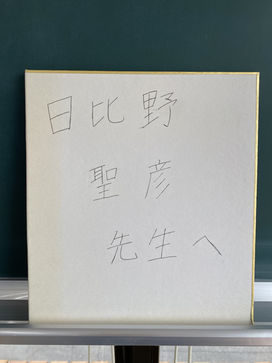 日比野
聖彦
先生へ